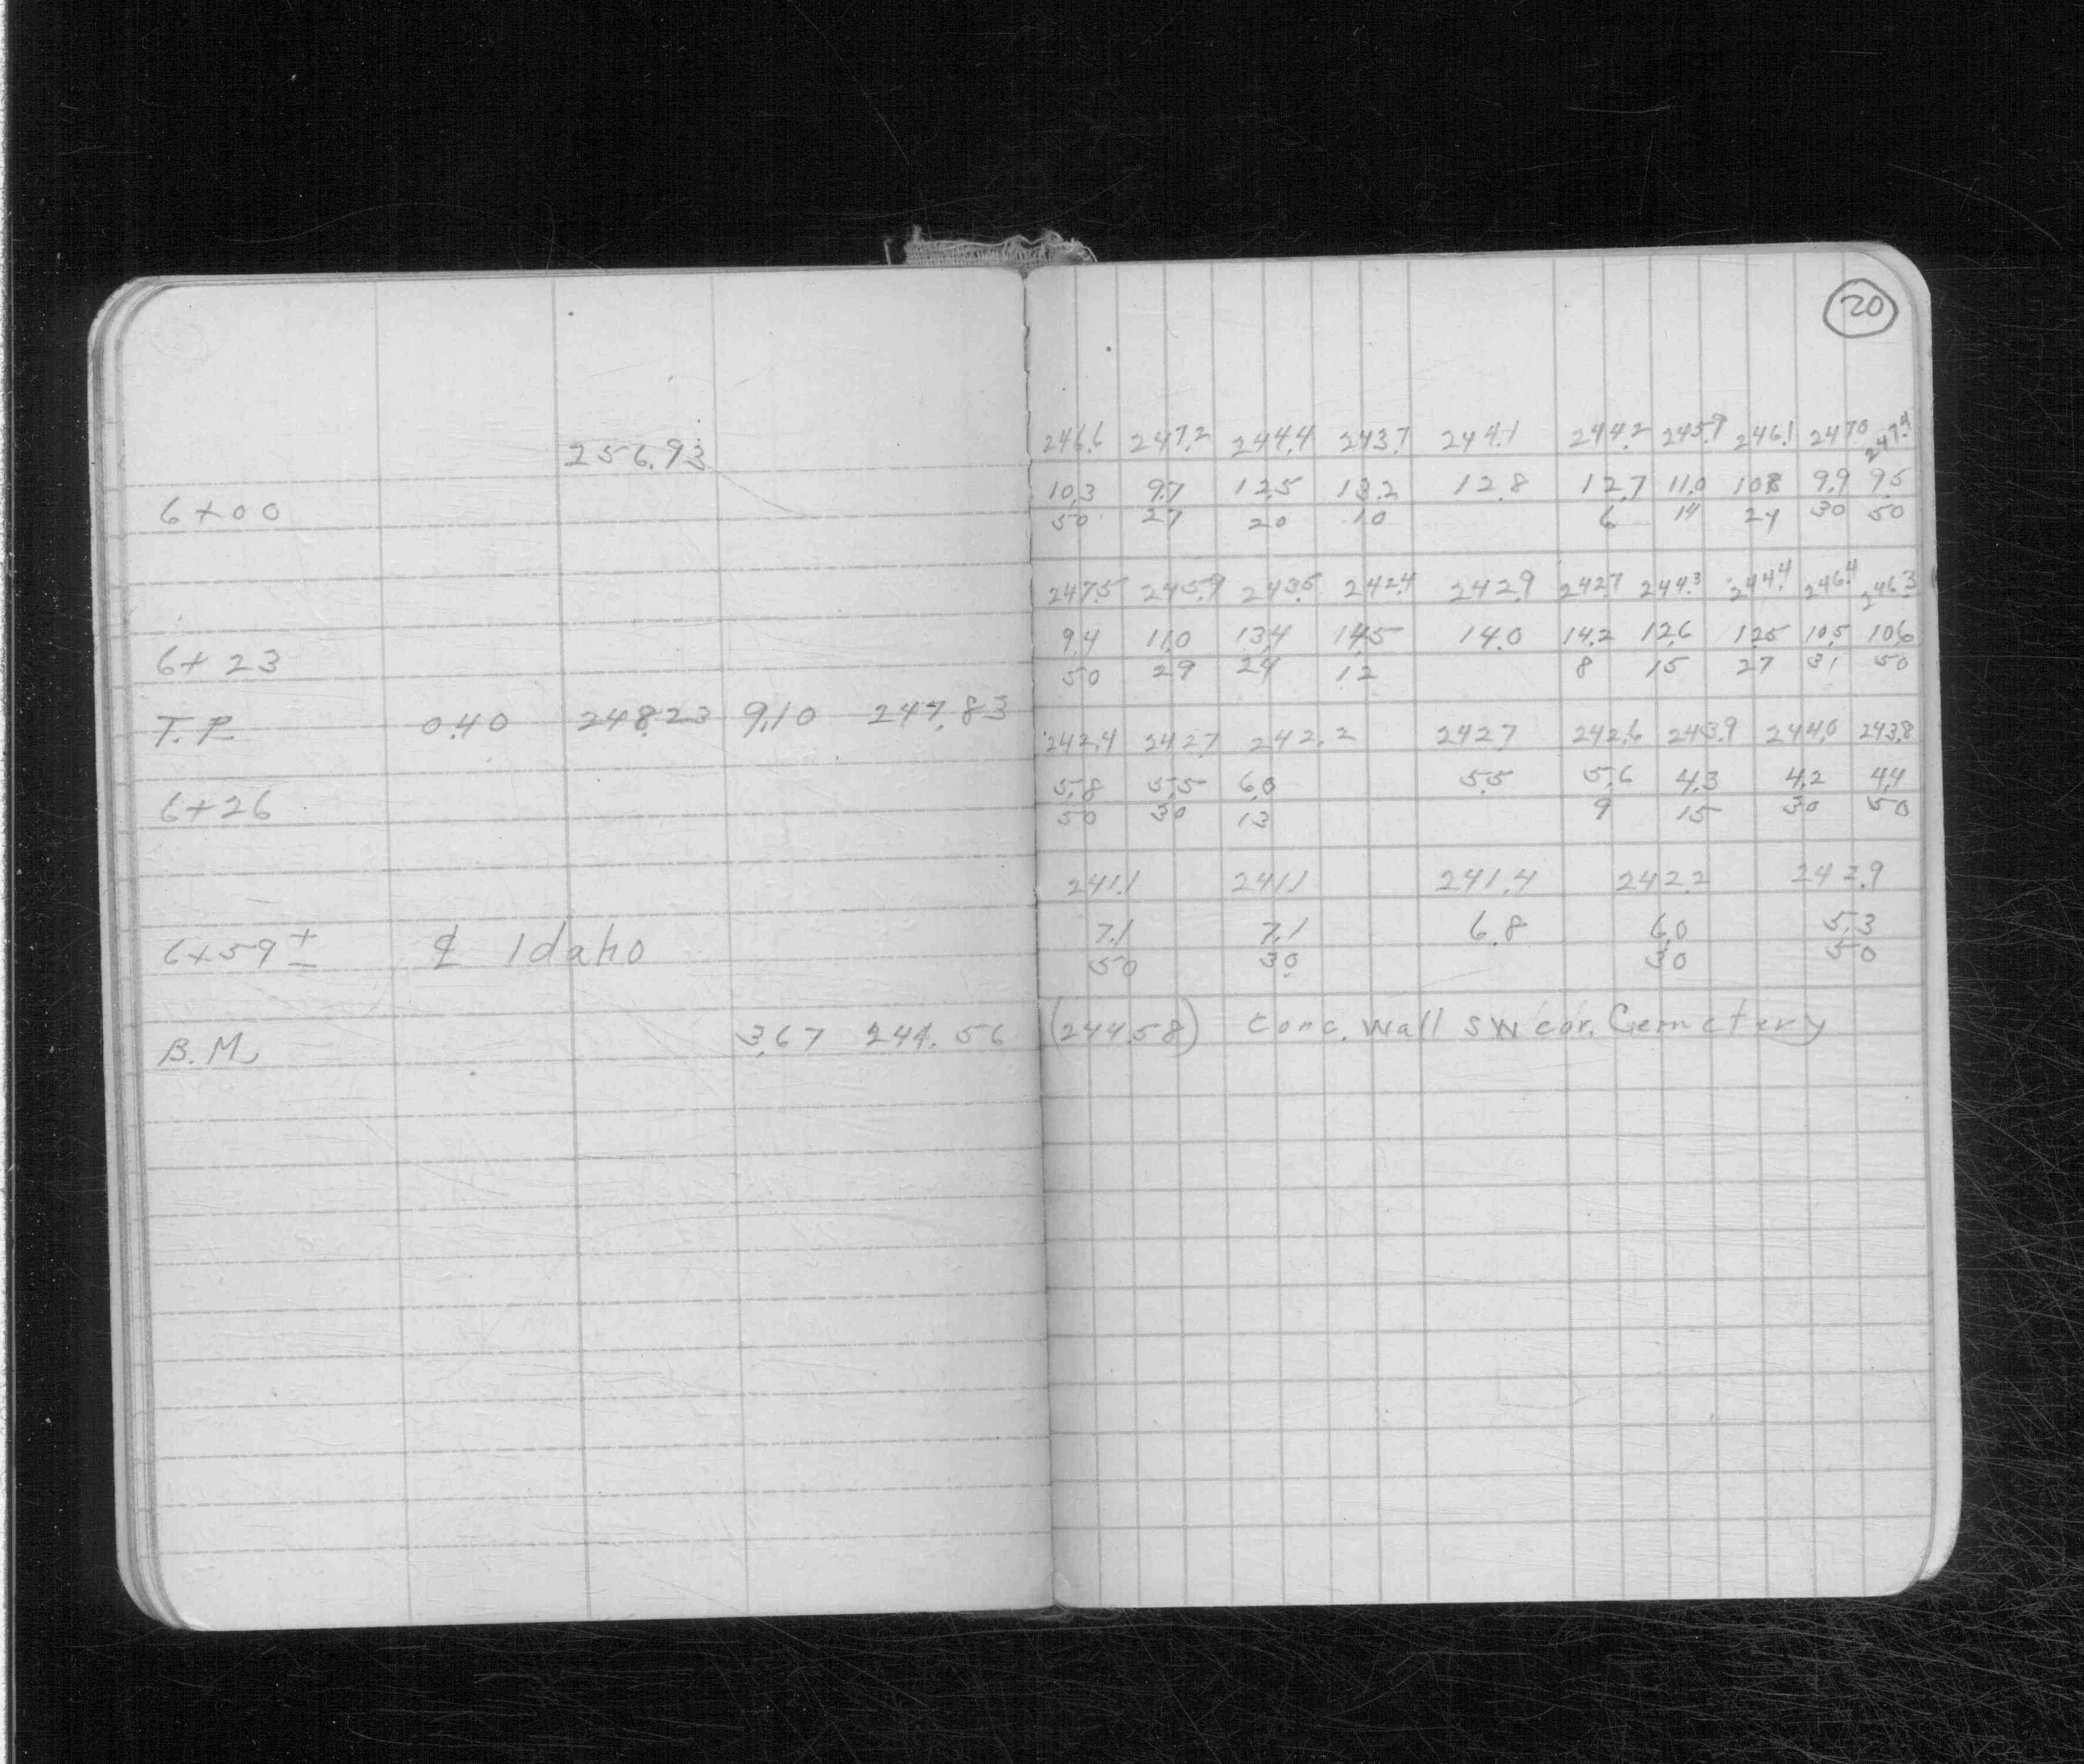 20
256.93
246.6 247.2 244.4 243.7 244.1 244.2 245.9 246.1 247.0 247.4
6+00 10.3 9.7 12.5 13.2 12.8 12.7 11.0 10.8 9.9 9.5
50 27 20 10 6 14 24 30 50
247.5 245.9 243.5 242.4 242.9 242.7 244.3 244.4 246.4 246.3
6+23 9.4 11.0 13.4 14.5 14.0 14.2 12.6 12.5 10.5 10.6
50 29 24 12 8 15 27 31 50
T.P. 0.40 248.23 9.10 247.83 242.4 242.7 242.2 242.7 242.6 243.9 244.0 243.8
6+26 5.8 5.5 6.0 5.5 5.6 4.3 4.2 4.4
50 30 13 9 15 30 50
241.1 241.1 241.4 242.2 242.9
6+59± ℄ Idaho 7.1 7.1 6.8 6.0 5.3
50 30 30 50
B.M. 3.67 244.56 (244.58) Conc. wall SW cor. Cemetery